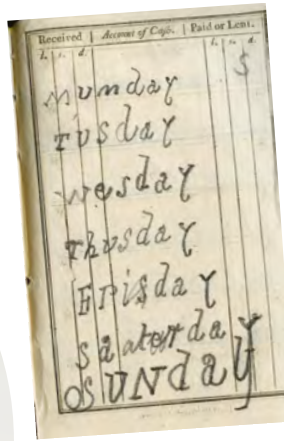 Received | Account of Cash. | Paid or Lent.
l. s. d. l. s. d.
S
Munday
TUSday
Wesday
Thusday
FRisday
Saaterday
OSUNday